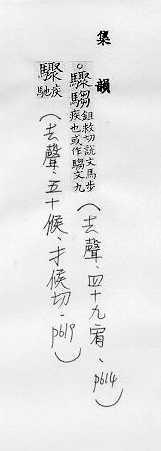 集韻
。驟驟鉏救切說文馬步疾也或作驟文九
(去聲、四十九宥、p614)
驟疾馳
(去聲、五十候、才候切、p619)